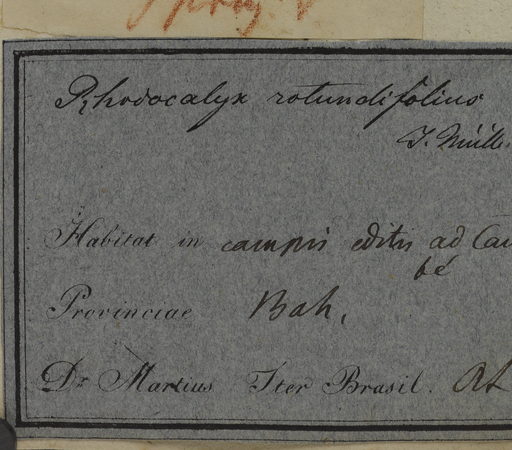 Rhodocalyx rotundifolius
J. Müll.
Habitat in campis editis ad
Provinciae Bah.
Dr Martius Iter Brasil.